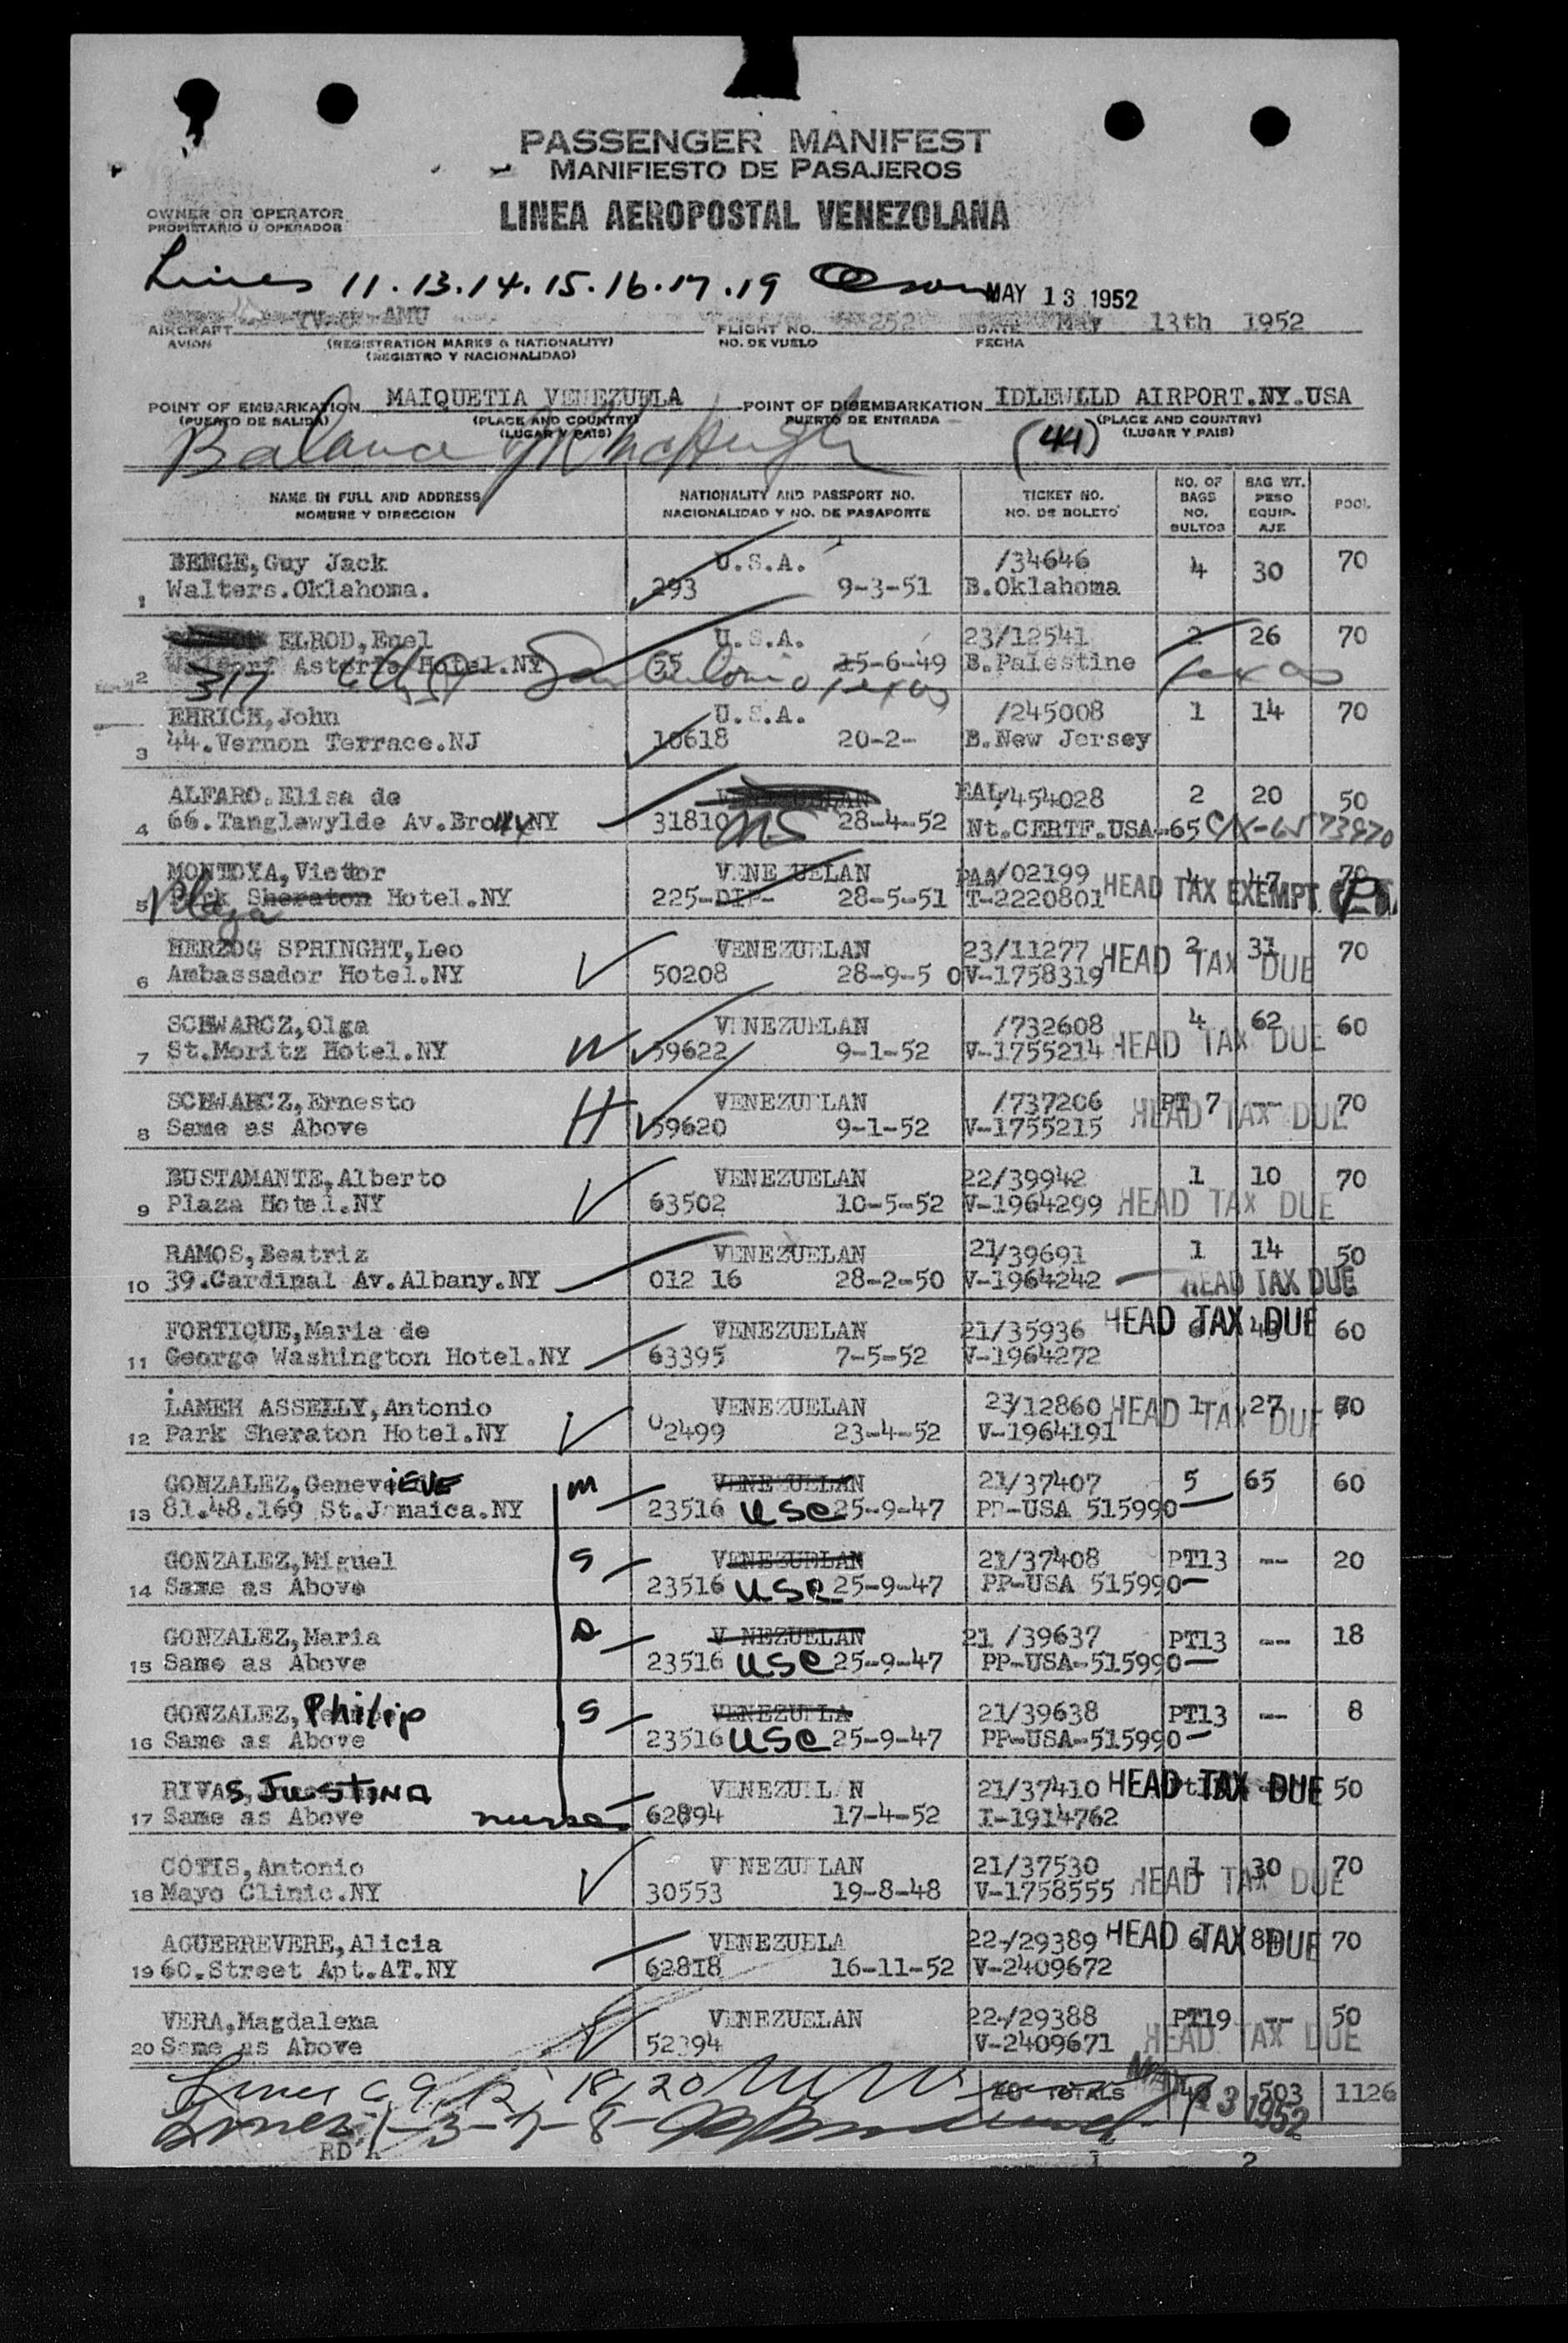 PASSENGER MANIFEST
MANIFIESTO DE PASAJEROS
LINEA AEROPOSTAL VENEZOLANA
OWNER OR OPERATOR
PROPIETARIO U OPERADOR
Lines 11.13.14.15.16.17.19
MAY 13 1952
AIRCRAFT AMU FLIGHT NO. 252 DATE May 13th 1952
AVION (REGISTRATION MARKS & NATIONALITY) NO. DE VUELO FECHA
(REGISTRO Y NACIONALIDAD)
POINT OF EMBARKATION MAIQUETIA VENEZUELA POINT OF DISEMBARKATION IDLEWILD AIRPORT.NY.USA
(PUERTO DE SALIDA) (PLACE AND COUNTRY) PUERTO DE ENTRADA (PLACE AND COUNTRY)
(LUGAR Y PAIS) (LUGAR Y PAIS)
Balance (44)
NAME IN FULL AND ADDRESS NATIONALITY AND PASSPORT NO. TICKET NO. NO. OF BAGS BAG WT. POOL
NOMBRE Y DIRECCION NACIONALIDAD Y NO. DE PASAPORTE NO. DE BOLETO NO. BULTOS PESO EQUIPAJE
BENGE, Guy Jack U.S.A. /34646 4 30 70
1 Walters.Oklahoma. 293 9-3-51 B.Oklahoma
ELROD, U.S.A. 23/12541 2 26 70
2 Astoria Hotel.NY 55 15-6-49 B.Palestine Texas
317 San Antonio Texas
EHRICH, John U.S.A. /245008 1 14 70
3 44.Vernon Terrace.NJ 10618 20-2- B.New Jersey
ALFARO.Elisa de VENEZUELAN EAL/454028 2 20 50
4 66.Tanglewylde Av. NY 31810 28-4-52 Nt.CERTF.USA-65
MONTOYA, Victor VENEZUELAN PAA/02199 4 47 70
5 Park Sheraton Hotel.NY 225-DIP- 28-5-51 T-2220801 HEAD TAX EXEMPT
Plaza
HERZOG SPRINGHT, Leo VENEZUELAN 23/11277 2 31 70
6 Ambassador Hotel.NY 50208 28-9-5 0 V-1758319 HEAD TAX DUE
SCHWARCZ, Olga VENEZUELAN /732608 4 62 60
7 St.Moritz Hotel.NY W 59622 9-1-52 V-1755214 HEAD TAX DUE
SCHWARCZ, Ernesto VENEZUELAN /737206 PT 7 -- 70
8 Same as Above H 59620 9-1-52 V-1755215 HEAD TAX DUE
BUSTAMANTE, Alberto VENEZUELAN 22/39942 1 10 70
9 Plaza Hotel.NY 63502 10-5-52 V-1964299 HEAD TAX DUE
RAMOS, Beatriz VENEZUELAN 21/39691 1 14 50
10 39.Cardinal Av.Albany.NY 012 16 28-2-50 V-1964242 HEAD TAX DUE
FORTIQUE, Maria de VENEZUELAN 21/35936 HEAD TAX DUE 60
11 George Washington Hotel.NY 63395 7-5-52 V-1964272
LAMEH ASSELLY, Antonio VENEZUELAN 23/12860 1 27 HEAD TAX DUE
12 Park Sheraton Hotel.NY 02499 23-4-52 V-1964191
GONZALEZ, GenevIEVE m VENEZUELAN 21/37407 5 65 60
13 81.48.169 St.Jamaica.NY 23516 USC 25-9-47 PP-USA 515990
GONZALEZ, Miguel S VENEZUELAN 21/37408 PT13 -- 20
14 Same as Above 23516 USC 25-9-47 PP-USA 515990
GONZALEZ, Maria D V NEZUELAN 21 /39637 PT13 -- 18
15 Same as Above 23516 USC 25-9-47 PP-USA-515990
GONZALEZ, Philip S VENEZUELA 21/39638 PT13 -- 8
16 Same as Above 23516 USC 25-9-47 PP-USA-515990
RIVAS, JUSTINA VENEZUELAN 21/37410 HEAD TAX DUE 50
17 Same as Above nurse 62894 17-4-52 I-1914762
COTIS, Antonio VENEZUELAN 21/37530 1 30 70
18 Mayo Clinic.NY 30553 19-8-48 V-1758555 HEAD TAX DUE
AGUERREVERE, Alicia VENEZUELA 22-/29389 6 HEAD TAX DUE 70
19 60.Street Apt.AT.NY 62818 16-11-52 V-2409672
VERA, Magdalena VENEZUELAN 22-/29388 PT19 -- 50
20 Same as Above 52394 V-2409671 HEAD TAX DUE
Lines 6, 9, 12, 18, 20 TOTALS 503 1126
Lines 1-3-7-8- 13 1952
1 2